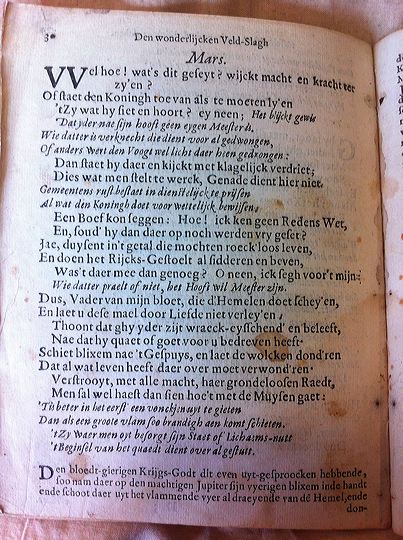 30 Den wonderlijcken Veld-Slagh
Mars.
WEl hoe! wat's dit geseyt? wijckt macht en kracht ter
zy'en?
Of staet den Koningh toe van als te moeten ly'en
'tZy wat hy siet en hoort? ey neen; Het blijckt gewis
Dat yder nae sijn hooft géen eygen Meester is.
Wie datter is verknecht die dient voor al gedwongen,
Of anders wert den Voogt wel licht daer heen gedrongen:
Dan staet hy daer en kijckt met klagelijck verdriet;
Dies wat men stelt te werck, Genade dient hier niet.
Gemeentens rust bestaet in dienstelijck te prijsen
Al wat den Koningh doet voor wettelijck bewijsen,
Een Boef kon seggen: Hoe! ick ken geen Redens Wet,
En, soud' hy dan daer op noch werden vry geset?
Jae, duysent in't getal die mochten roeck'loos leven,
En doen het Rijcks-Gestoelt al sidderen en beven,
Was't daer mee dan genoeg? O neen, ick segh voor't mijn:
Wie datter praelt of niet, het Hooft wil Meester zijn.
Dus, Vader van mijn bloet, die d'Hemelen doet schey'en,
En laet u dese mael door Liefde niet verley'en,
Thoont dat ghy yder zijt wraeck-eysschend' en beleeft,
Nae dat hy quaet of goet voor u bedreven heeft.
Schiet blixem nae 't Gespuys, en laet de wolcken dond'ren
Dat al wat leven heeft daer over moet verwond'ren
Verstrooyt, met alle macht, haer grondeloosen Raedt,
Men sal wel haest dan sien hoe't met de Muysen gaet:
'Tis beter in het eerst een vonckjen uyt te gieten
Dan als een groote vlam soo brandigh aen komt schieten.
'tZy Waer men oyt besorgt sijn Staet of Lichaems-nutt
't Beginsel van het quaedt dient over al gestutt.
Den bloedt-gierigen Krijgs-Godt dit even uyt-gesproocken hebbende,
soo nam daer op den machtigen Jupiter sijn vyerigen blixem inde handt
ende schoot daer uyt het vlammende vyer al draeyende van dē Hemel, ende
don-